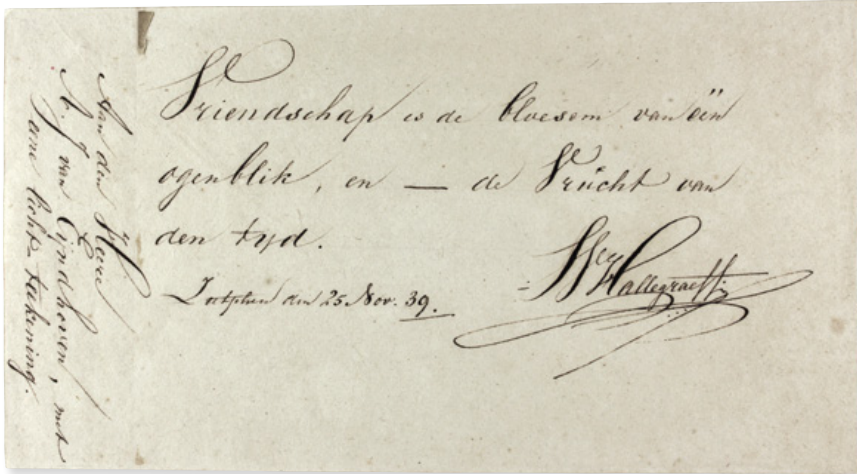 Vriendschap is de bloesem van één
ogenblik, en — de Vrucht van
den tyd.
Zutphen den 25 Nov. 39.
Hallegraeff
Aan den Heere
A. J. van Eijndhoven, met
eene licht-teekening.